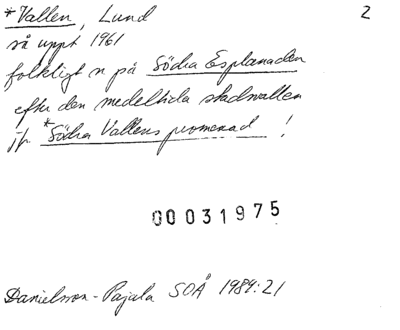 *Vallen, Lund 2
så uppt 1961
folkligt n på Södra Esplanaden
efter den medeltida stadsvallen
jfr *Södra Vallens promenad !
00031975
Danielsson-Pajala SOÅ 1984:21